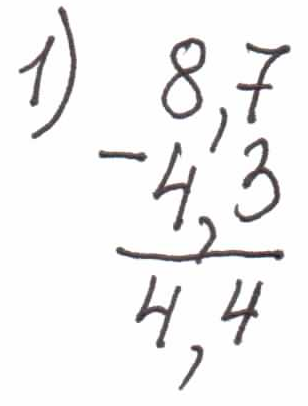 1) 8,7
- 4,3
4,4